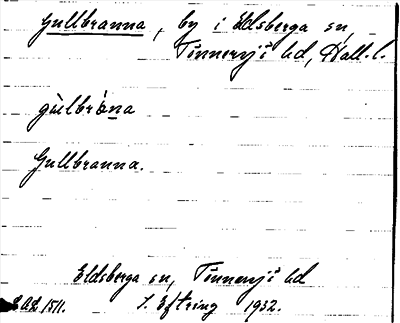 Gullbranna, by i Eldsberga sn,
Tönnersjö hd, Hall. l.
gùlbrána
Gullbranna.
Eldsberga sn, Tönnersjö hd
EAL 1511. S. Eftring 1932.